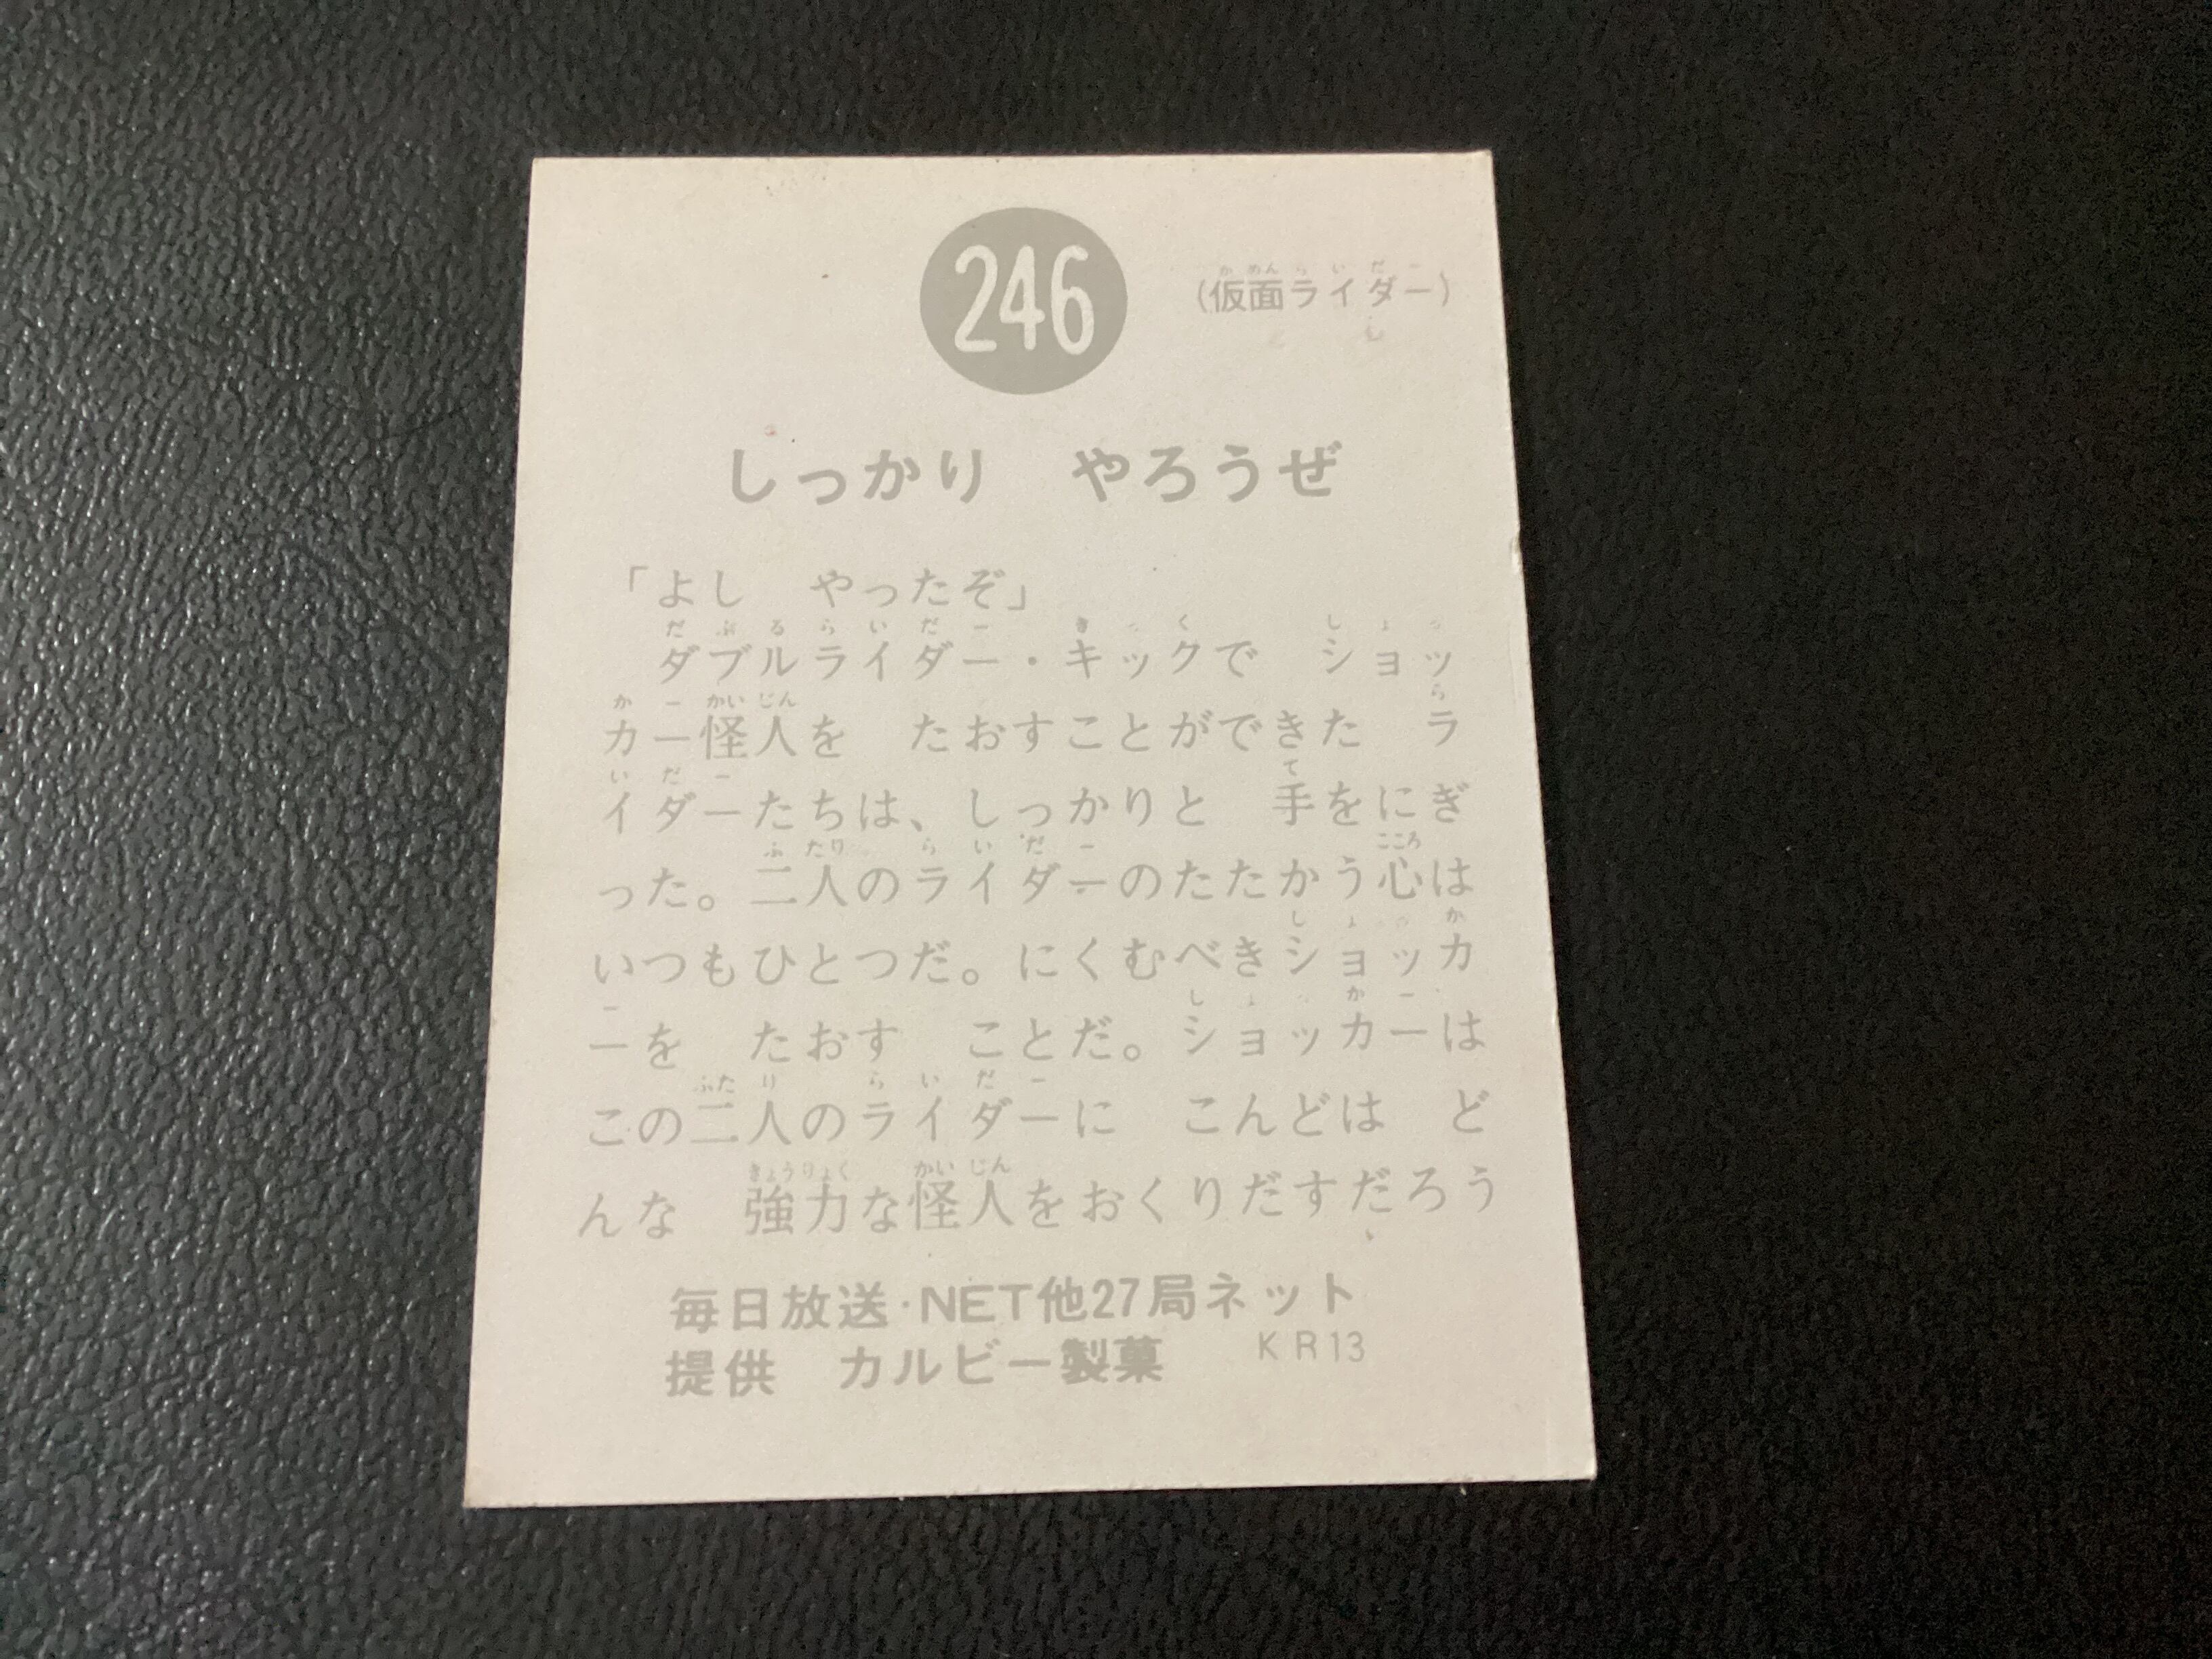 246
(仮面ライダー)
しっかり　やろうぜ
「よし　やったぞ」
ダブルライダー・キックで　ショッ
カー怪人を　たおすことができた　ラ
イダーたちは、しっかりと　手をにぎ
った。二人のライダーのたたかう心は
いつもひとつだ。にくむべきショッカ
ーを　たおす　ことだ。ショッカーは
この二人のライダーに　こんどは　ど
んな　強力な怪人をおくりだすだろう
毎日放送・NET他27局ネット
提供　カルビー製菓　KR13